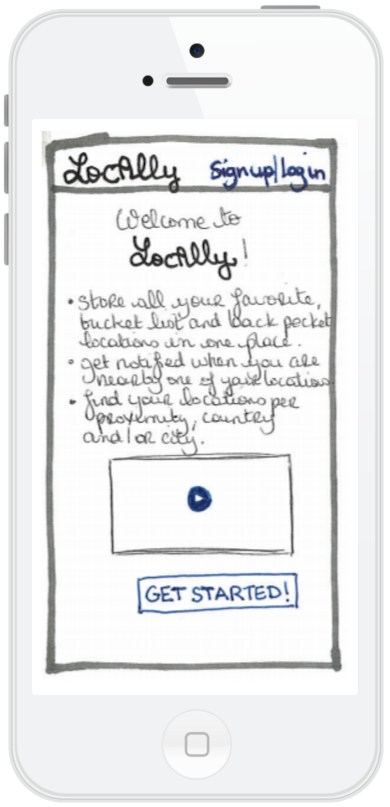 LocAlly Sign up/login
Welcome to
LocAlly!
• Store all your favorite,
bucket list and back pocket
locations in one place.
• get notified when you are
nearby one of your locations
• find your locations per
proximity, country
and/or city.
GET STARTED!